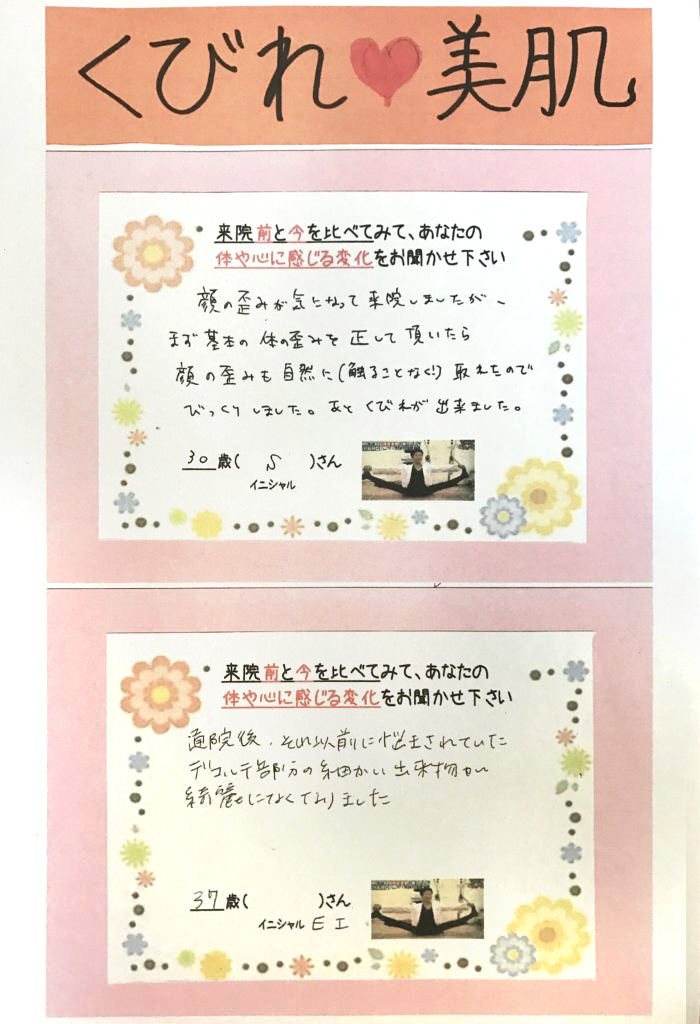 くびれ♥美肌
来院前と今を比べてみて、あなたの
体や心に感じる変化をお聞かせ下さい
顔の歪みが気になって来院しましたが、
まず基本の体の歪みを正して頂いたら
顔の歪みも自然に(触ることなく!)取れたので
びっくりしました。あとくびれが出来ました。
30歳( S )さん
イニシャル
来院前と今を比べてみて、あなたの
体や心に感じる変化をお聞かせ下さい
通院後、それ以前に悩まされていた
デコルテ部分の細かい出来物が
綺麗になくなりました
37歳( )さん
イニシャル E I